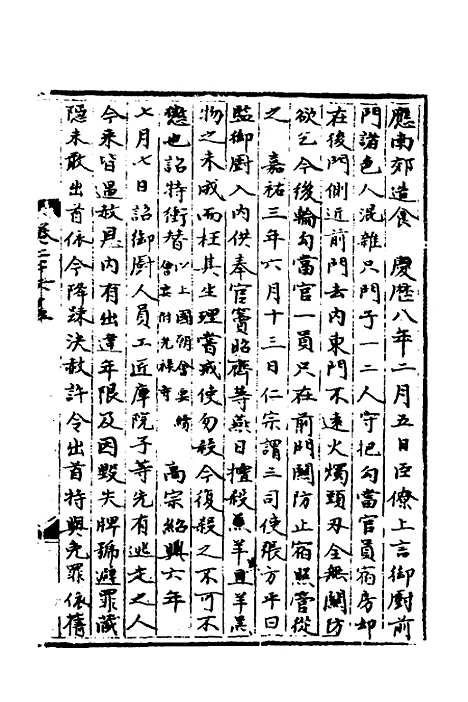 應南郊造食　慶歷八年二月五日臣僚上言御廚前
門諸色人混雜只門子一二人守把勾當官員宿房却
在後門側近前門去內東門不遠火燭頭刃全無關防
欲乞今後輪勾當官一員只在前門關防止宿照管從
之　嘉祐三年六月十三日仁宗謂三司使張方平曰
監御廚入內供奉官竇昭齊等燕日擅殺羊羔
物之未成而枉其生理嘗戒使勿殺今復殺之不可不
懲也詔特衝替以上國朝會要續會要附光祿寺　高宗紹興六年
七月七日詔御廚人員工匠庫院子等先有逃走之人
今來皆遇赦恩內有出違年限及因毀失牌號避罪藏
隱未敢出首依今降疎決赦許令出首特與免罪依舊
卷二千